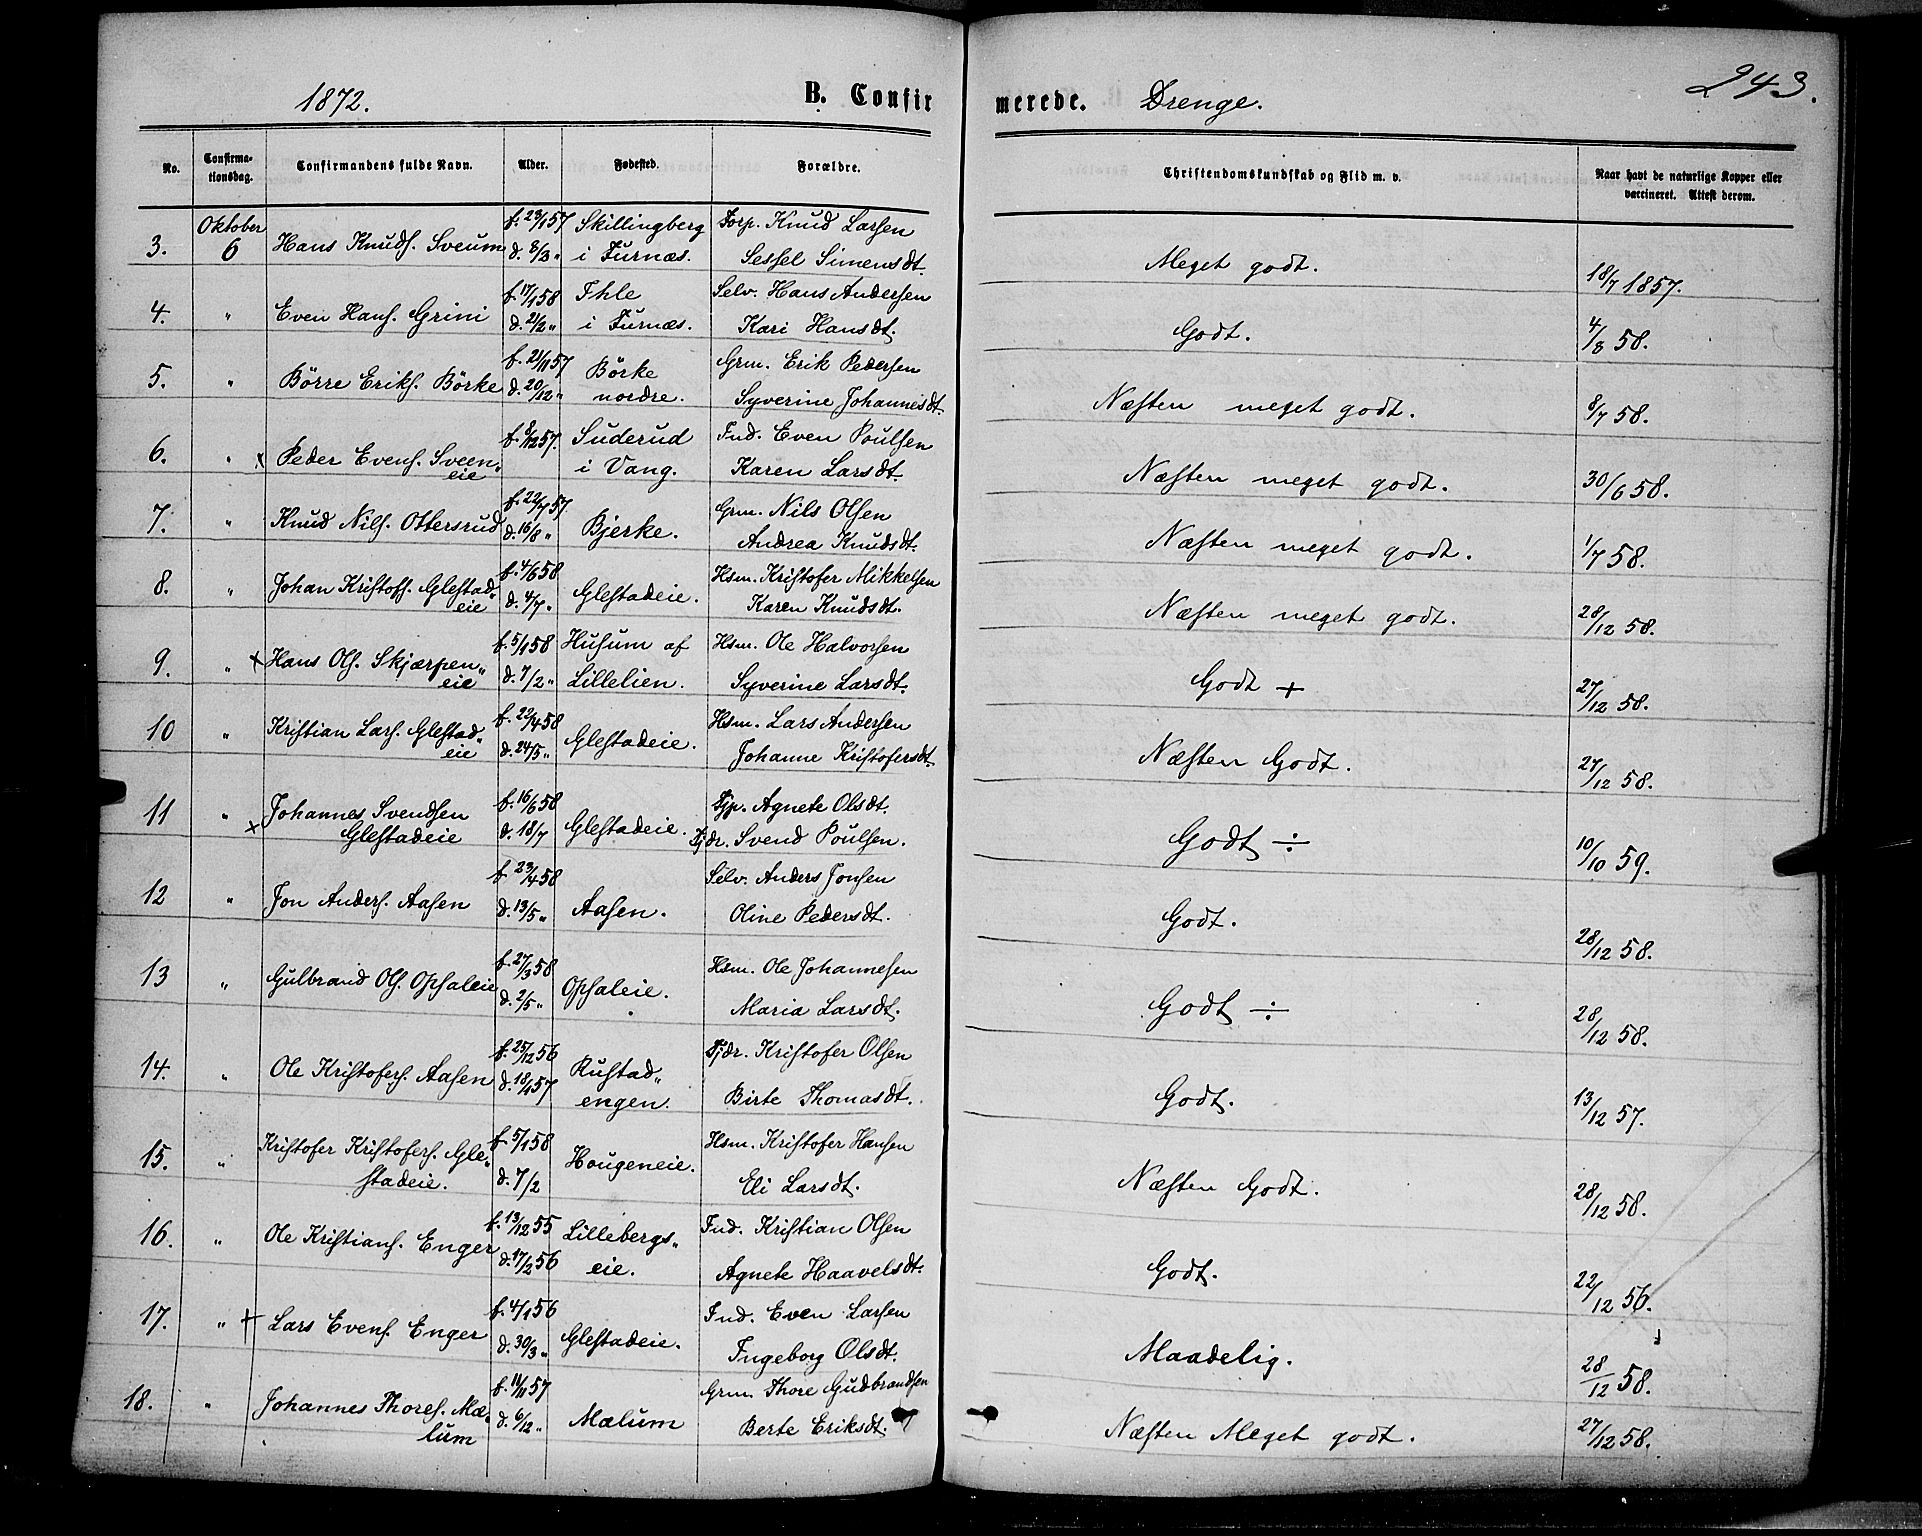 1872. B. Confirmerede. Drenge. 243.
No. Confirmationsdag. Confirmandens fulde Navn. Alder. Fødested. Forældre. Christendomskundskab og Flid m. v. Naar havt de naturlige Kopper eller vaccineret. Attest derom.
3. Oktober 6 Hans Knuds. Sveum f. 23/1 57 Skillingberg Forp. Knud Larsen
d. 8/3 " i Furnæs. Sessel Simensdt. Meget godt. 18/7 1857.
4. " Even Hans. Grini f. 17/1 58 Ihle Selv. Hans Andersen
d. 21/2 " i Furnæs. Kari Hansdt. Godt. 4/8 58.
5. " Börre Eriks. Börke f. 21/11 57 Börke Grm. Erik Pedersen
d. 20/12 " nordre. Syverine Johannesdt. Næsten meget godt. 8/7 58.
6. " x Peder Evens. Sveen- f. 8/12 57. Suderud Ind. Even Poulsen
eie i Vang. Karen Larsdt. Næsten meget godt. 30/6 58.
7. " Knud Nils. Ottersrud f. 22/7 57 Bjerke. Grm. Nils Olsen
d. 16/8 " Andrea Knudsdt. Næsten meget godt. 1/7 58.
8. " Johan Kristoff. Glestad- f. 4/6 58 Glestadeie. Hsm. Kristofer Mikkelsen
eie d. 4/7 " Karen Knudsdt. Næsten meget godt. 28/12 58.
9. " + Hans Ols. Skjærpen- f. 5/1 58 Husum af Hsm. Ole Halvorsen
eie d. 7/2 " Lillelien. Syverine Larsdt. Godt + 27/12 58.
10 " Kristian Lars. Glestad- f. 22/4 58 Glestadeie. Hsm. Lars Andersen
eie d. 24/5 " Johanne Kristofersdt. Næsten Godt. 27/12 58.
11 " x Johannes Svendsen f. 16/6 58 Glestadeie. Pjp. Agnete Olsdt.
Glestadeie d. 18/7 Tjdr. Svend Poulsen. Godt ÷ 10/10 59.
12 " Jon Anders. Aasen f. 23/4 58 Aasen. Selv. Anders Jonsen
d. 13/5 " Oline Pedersdt. Godt. 28/12 58.
13 " Gulbrand Ols. Opsaleie f. 27/3 58 Opsaleie. Hsm. Ole Johannesen
d. 2/5 " Maria Larsdt. Godt ÷ 28/12 58.
14. " Ole Kristofers. Aasen f. 25/12 56 Rustad- Tjdr. Kristofer Olsen
d. 18/1 57 engen. Birte Thomasdt. Godt. 13/12 57.
15. " Kristofer Kristofers. Gle- f. 5/1 58 Hougeneie. Hsm. Kristofer Hansen
stadeie. d. 7/2 Eli Larsdt. Næsten Godt. 28/12 58.
16. " Ole Kristians. Enger f. 13/12 55 Lillebergs- Ind. Kristian Olsen
d. 17/2 56 eie. Agnete Haavelsdt. Godt. 22/12 56.
17. " + Lars Evens. Enger f. 4/1 56 Glestadeie. Ind. Even Larsen
d. 30/3 " Ingeborg Olsdt. Maadelig. 28/12 58.
18. " Johannes Thores. Mæ- f. 11/11 57 Mælum Grm. Thore Gudbrandsen
lum d. 6/12 " Berte Eriksdt. Næsten Meget godt. 27/12 58.